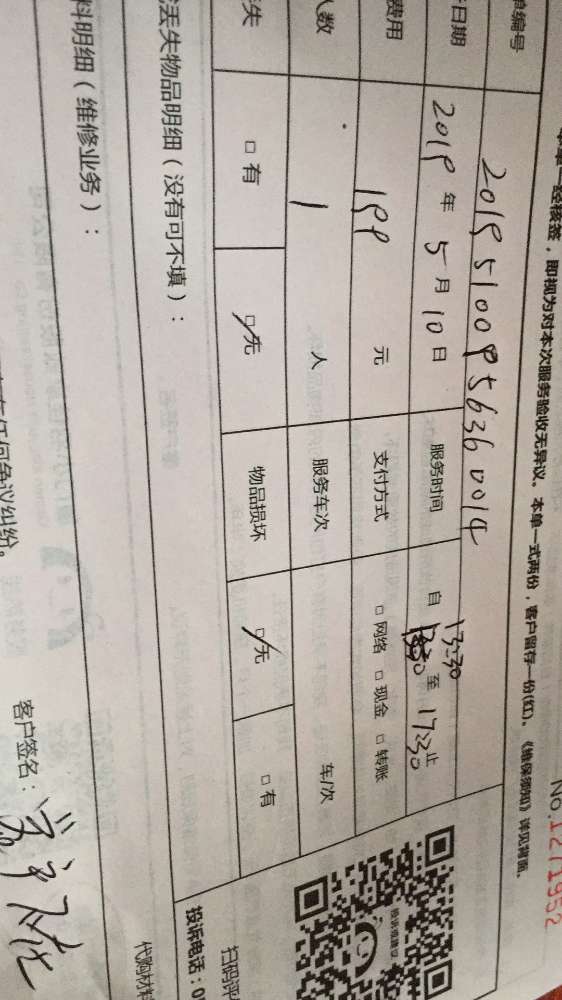 No.1271952
本单一经核签，即视为对本次服务验收无异议。本单一式两份，客户留存一份(红)。《维保须知》详见背面。
单编号 2019510095636 0014
日期 2019年 5月 10日 服务时间 自 13:30 至 17:30 止
费用 199 元 支付方式 □ 网络 □ 现金 □ 转账
人数 1 人 服务车次 车/次
失 □ 有 □ 无 物品损坏 □ 无 □ 有
丢失物品明细（没有可不填）：
料明细（维修业务）：
投诉或建议
扫码评
投诉电话：0
代购材料
任何争议纠纷。
客户签名：